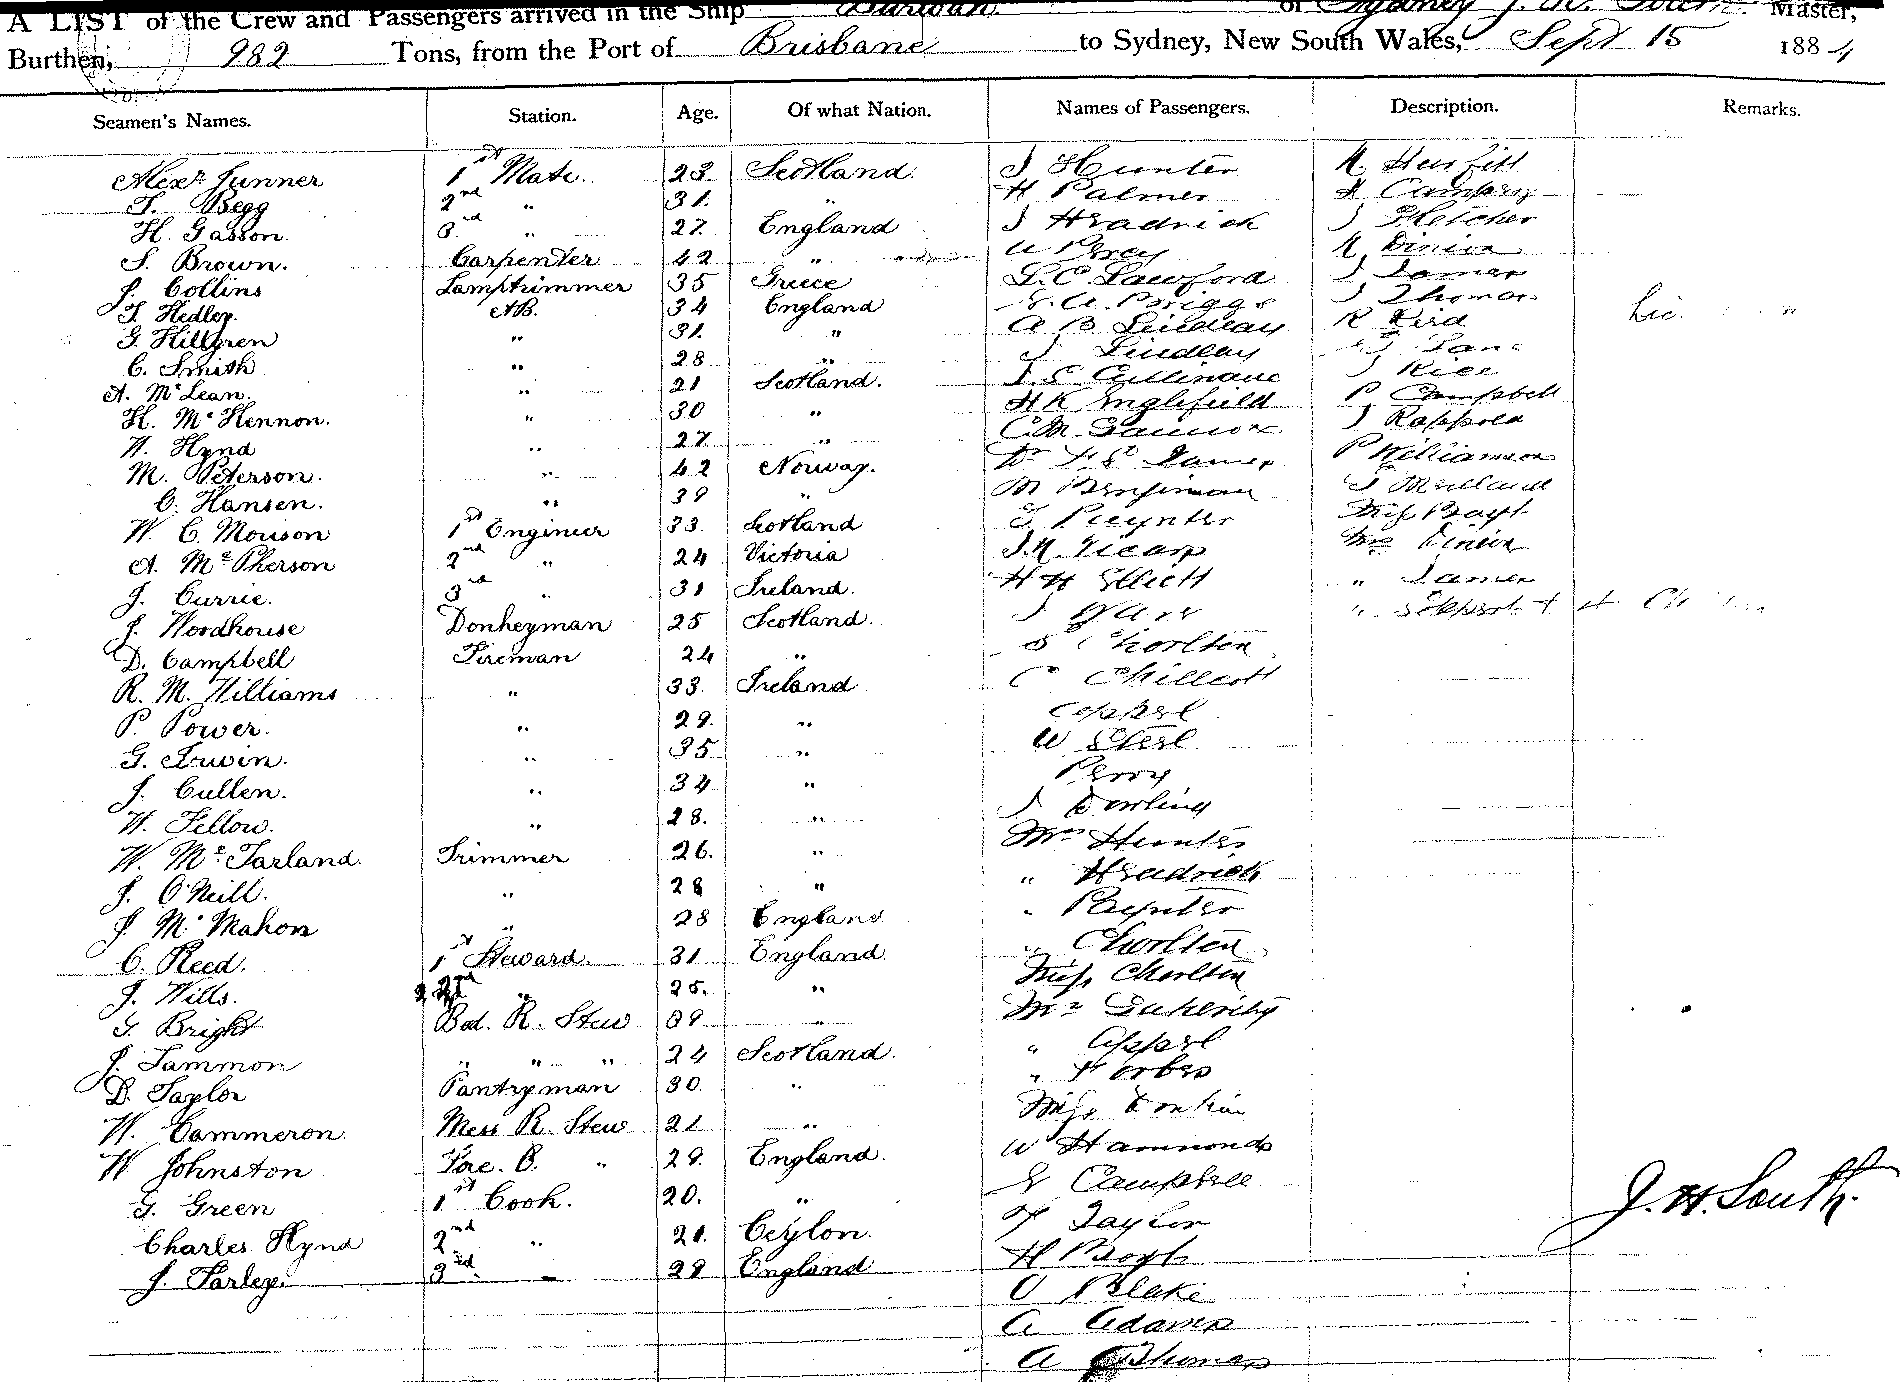 A LIST of the Crew and Passengers arrived in the Ship Burwah of Sydney J. H. South Master,
Burthen, 982 Tons, from the Port of Brisbane to Sydney, New South Wales, Sept 15 1884
Seamen's Names. Station. Age. Of what Nation. Names of Passengers. Description. Remarks.
Alexr Junner 1st Mate. 23. Scotland. J Hunter
J. Begg 2nd " 31. " H Palmer
H. Gasson. 3rd " 27 England J Hradrick J Fletcher
S. Brown. Carpenter 42 " W Percy
J. Collins Lamptrimmer 35 Greece L. C. Lawford J James
T. Hedley. AB. 34 England Briggs J Thomas
G. Hillgren " 31. " A B Lindlay R Kird
C. Smith " 28 " J Lindlay Lane
A. Mc Lean. " 21 Scotland. Cullinane J Rice
H. Mc Kennon. " 30 " H K Inglefield P Campbell
W. Hynd " 27 " C M J Rappold
M. Peterson. " 42 Norway. James P Williamson
C. Hansen. " 39 " M Benjiman
W. C. Monson 1st Engineer 33. Scotland Poynter Miss Boyt
A. Mc Pherson 2nd " 24 Victoria J. H. Vicars Mrs
J. Currie. 3rd " 31 Ireland. H H Elliott " James
J. Wordhouse Donkeyman 25 Scotland. J
D. Campbell Fireman 24 " S Chorlton
R. M. Williams " 33. Ireland C Chillcott
P. Power. " 29. " Copperl
G. Irwin. " 35 " W
J. Cullen. " 34 " Perry
W. Fellow. " 28. " J Dowling
W. Mc Farland. Trimmer 26. " Mrs Hunter
J. O'Neill. " 28 " " Hradrick
J Mc Mahon " 28 England " Poynter
C. Reed. 1st Steward. 31 England " Chorlton
J. Wills. 2nd " 25. " Miss Chorlton
G. Bright Bed. R. Stew 39 " Mrs
J. Tammon " " " 24 Scotland. "
D. Taylor Pantryman 30. " " Forbes
W. Cammeron. Mess R. Stew 21 " Miss
W Johnston Fore. C. " 29. England. W Hammonds
G. Green 1st Cook. 20. " Campbell
Charles Hynd 2nd " 21. Ceylon. Taylor J. H. South.
J. Farley. 3rd " 28 England H Boyt
O Blake
A Adams
A Thomas